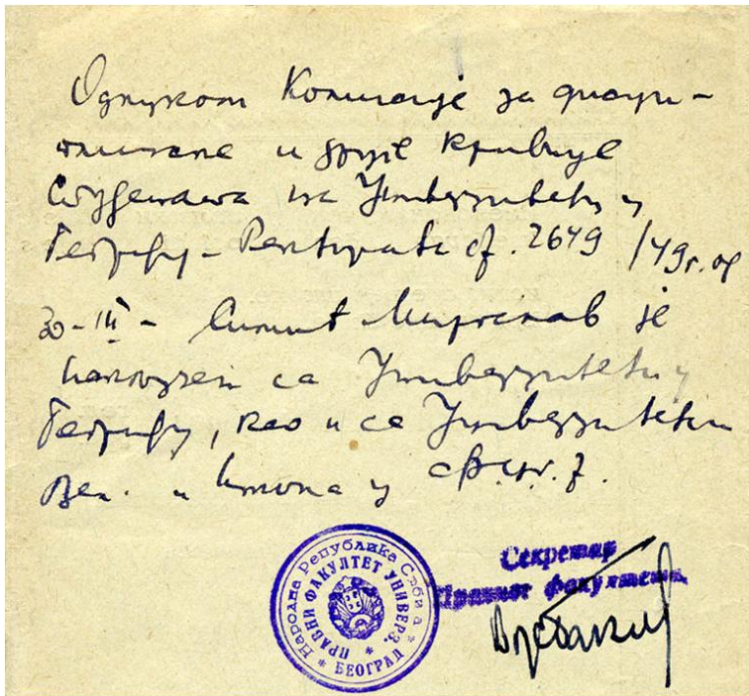 Одлуком Комисије за дисци-
плинске и друге кривице
Студената на Универзитету у
Београду - Ректората бр. 2649 /49г. од
30-III- Симић Мирослав је
искључен са Универзитета у
Београду, као и са Универзитета
и школа у
Народна Република Србија
ПРАВНИ ФАКУЛТЕТ УНИВЕРЗ.
БЕОГРАД
Секретар
Правног факултета